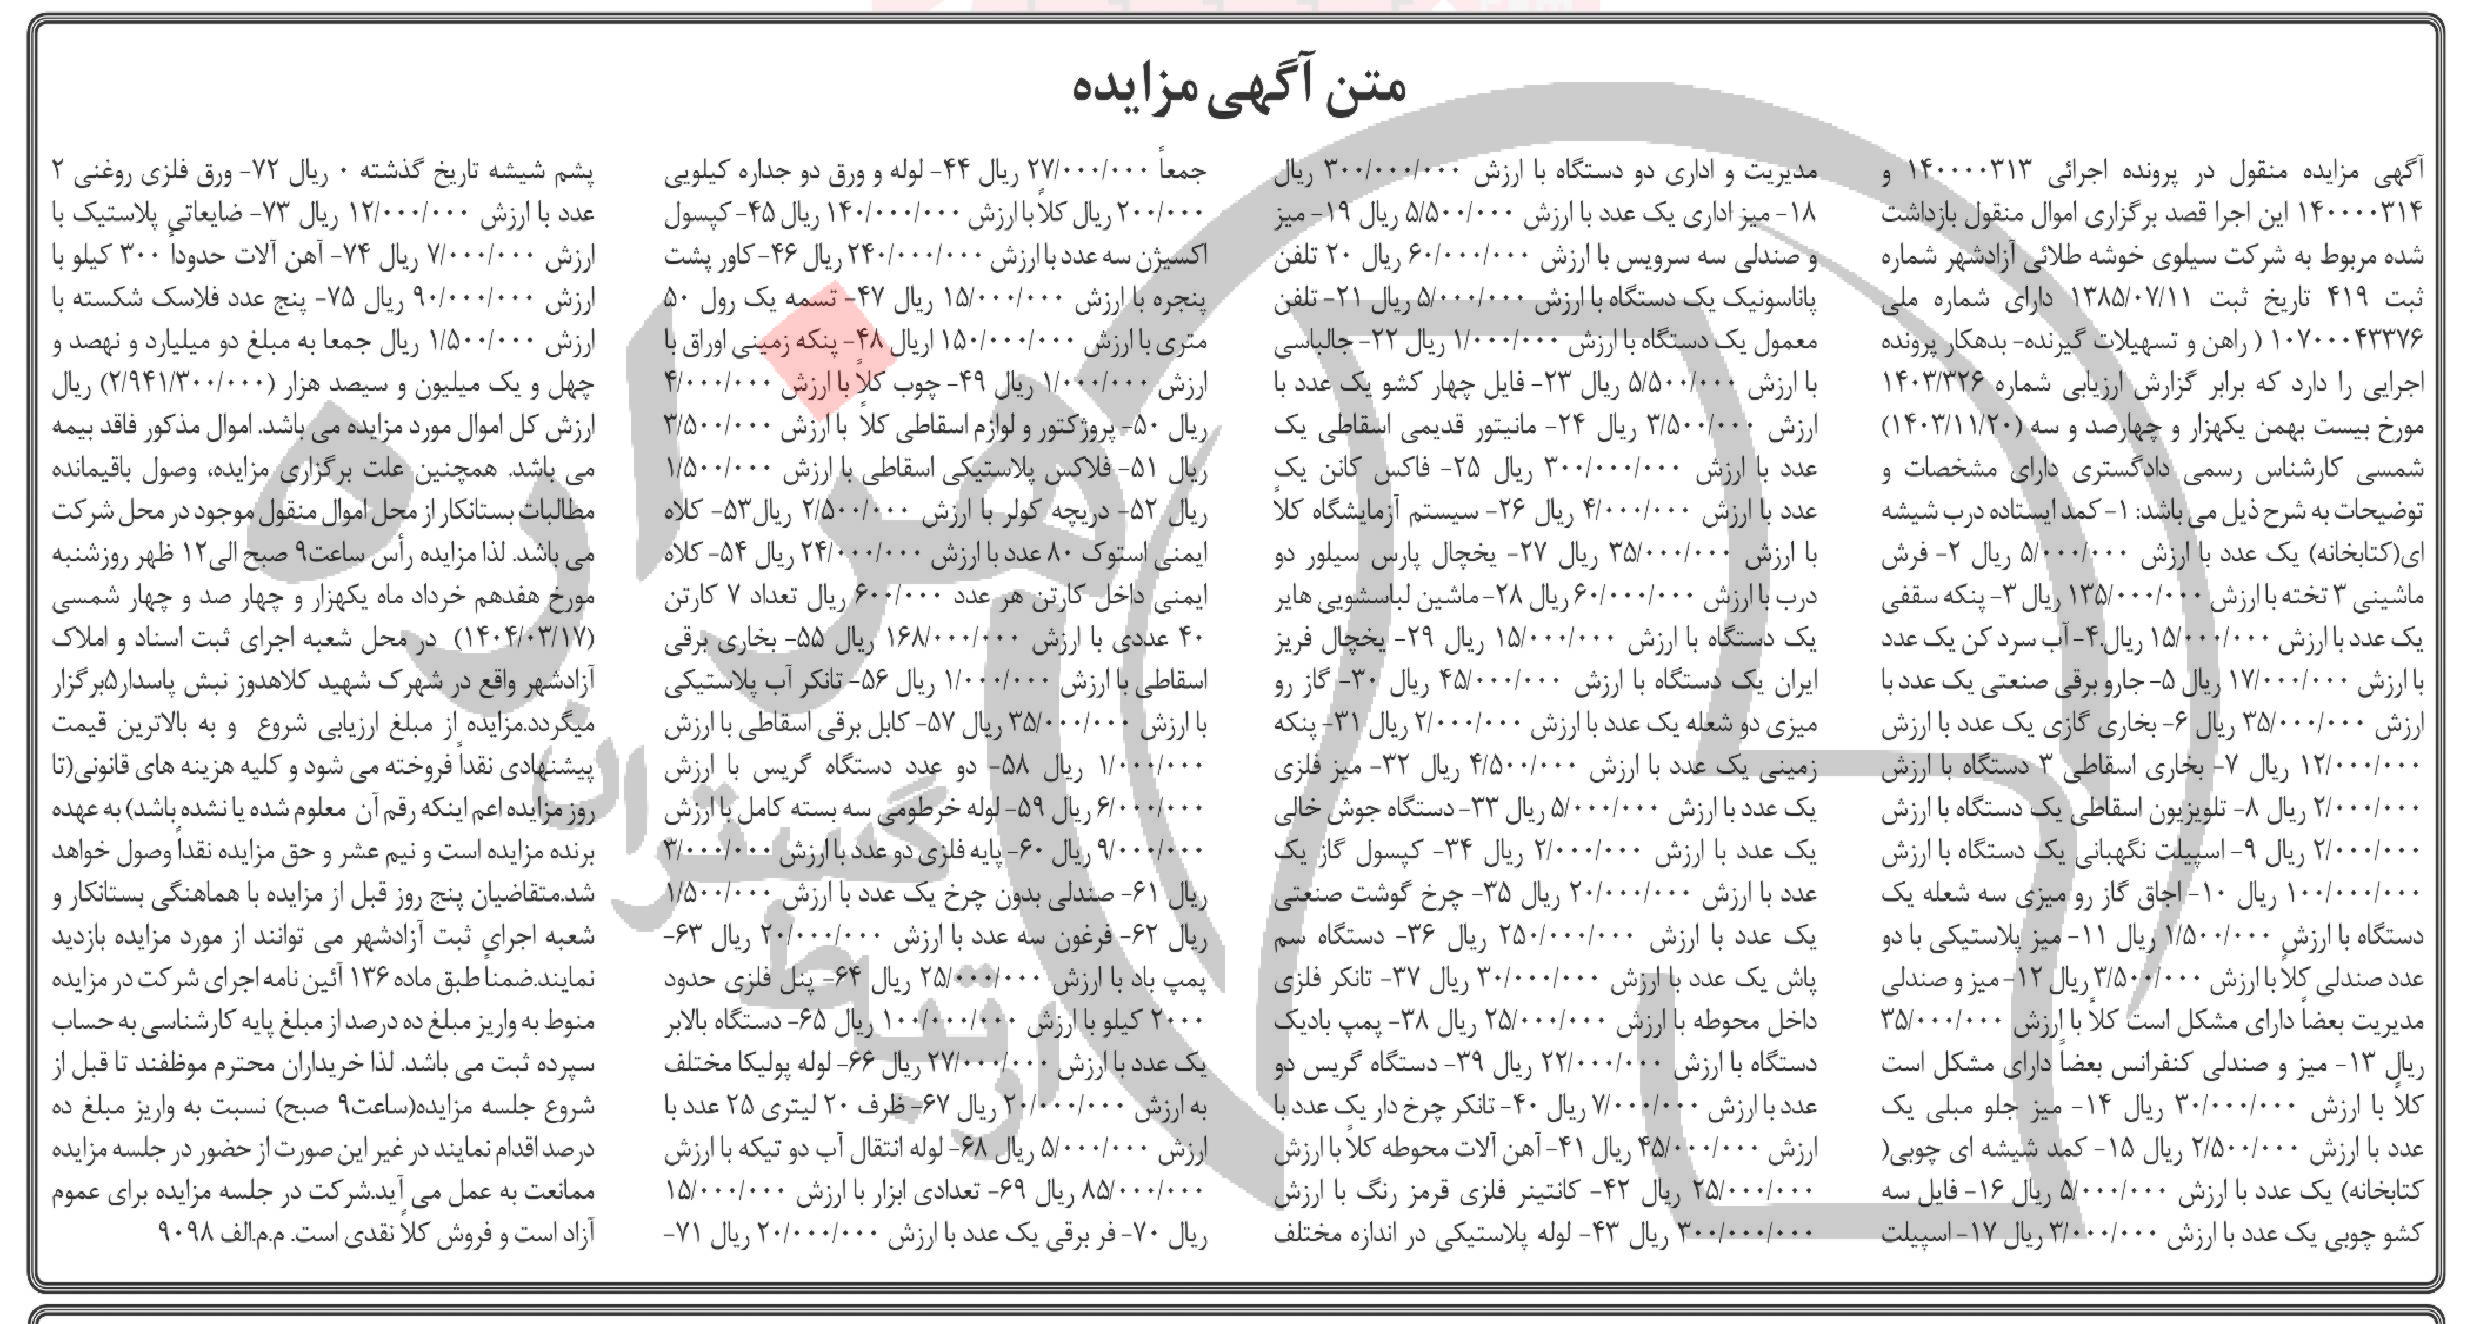 متن آگهی مزایده
آگهی مزایده منقول در پرونده اجرائی ۱۴۰۰۰۰۳۱۳ و
۱۴۰۰۰۰۳۱۴ این اجرا قصد برگزاری اموال منقول بازداشت
شده مربوط به شرکت سیلوی خوشه طلائی آزادشهر شماره
ثبت ۴۱۹ تاریخ ثبت ۱۳۸۵/۰۷/۱۱ دارای شماره ملی
۱۰۷۰۰۰۴۳۳۷۶ ( راهن و تسهیلات گیرنده- بدهکار پرونده
اجرایی را دارد که برابر گزارش ارزیابی شماره ۱۴۰۳/۳۲۶
مورخ بیست بهمن یکهزار و چهارصد و سه (۱۴۰۳/۱۱/۲۰)
شمسی کارشناس رسمی دادگستری دارای مشخصات و
توضیحات به شرح ذیل می باشد: ۱- کمد ایستاده درب شیشه
ای(کتابخانه) یک عدد با ارزش ۵/۰۰۰/۰۰۰ ریال ۲- فرش
ماشینی ۳ تخته با ارزش ۱۳۵/۰۰۰/۰۰۰ ریال ۳- پنکه سقفی
یک عدد با ارزش ۱۵/۰۰۰/۰۰۰ ریال.۴- آب سرد کن یک عدد
با ارزش ۱۷/۰۰۰/۰۰۰ ریال ۵- جارو برقی صنعتی یک عدد با
ارزش ۳۵/۰۰۰/۰۰۰ ریال ۶- بخاری گازی یک عدد با ارزش
۱۲/۰۰۰/۰۰۰ ریال ۷- بخاری اسقاطی ۳ دستگاه با ارزش
۲/۰۰۰/۰۰۰ ریال ۸- تلویزیون اسقاطی یک دستگاه با ارزش
۲/۰۰۰/۰۰۰ ریال ۹- اسپیلت نگهبانی یک دستگاه با ارزش
۱۰۰/۰۰۰/۰۰۰ ریال ۱۰- اجاق گاز رو میزی سه شعله یک
دستگاه با ارزش ۱/۵۰۰/۰۰۰ ریال ۱۱- میز پلاستیکی با دو
عدد صندلی کلاً با ارزش ۳/۵۰۰/۰۰۰ ریال ۱۲- میز و صندلی
مدیریت بعضاً دارای مشکل است کلاً با ارزش ۳۵/۰۰۰/۰۰۰
ریال ۱۳- میز و صندلی کنفرانس بعضاً دارای مشکل است
کلاً با ارزش ۳۰/۰۰۰/۰۰۰ ریال ۱۴- میز جلو مبلی یک
عدد با ارزش ۲/۵۰۰/۰۰۰ ریال ۱۵- کمد شیشه ای چوبی(
کتابخانه) یک عدد با ارزش ۵/۰۰۰/۰۰۰ ریال ۱۶- فایل سه
کشو چوبی یک عدد با ارزش ۳/۰۰۰/۰۰۰ ریال ۱۷- اسپیلت
مدیریت و اداری دو دستگاه با ارزش ۳۰۰/۰۰۰/۰۰۰ ریال
۱۸- میز اداری یک عدد با ارزش ۵/۵۰۰/۰۰۰ ریال ۱۹- میز
و صندلی سه سرویس با ارزش ۶۰/۰۰۰/۰۰۰ ریال ۲۰ تلفن
پاناسونیک یک دستگاه با ارزش ۵/۰۰۰/۰۰۰ ریال ۲۱- تلفن
معمول یک دستگاه با ارزش ۱/۰۰۰/۰۰۰ ریال ۲۲- جالباسی
با ارزش ۵/۵۰۰/۰۰۰ ریال ۲۳- فایل چهار کشو یک عدد با
ارزش ۳/۵۰۰/۰۰۰ ریال ۲۴- مانیتور قدیمی اسقاطی یک
عدد با ارزش ۳۰۰/۰۰۰/۰۰۰ ریال ۲۵- فاکس کانن یک
عدد با ارزش ۴/۰۰۰/۰۰۰ ریال ۲۶- سیستم آزمایشگاه کلاً
با ارزش ۳۵/۰۰۰/۰۰۰ ریال ۲۷- یخچال پارس سیلور دو
درب با ارزش ۶۰/۰۰۰/۰۰۰ ریال ۲۸- ماشین لباسشویی هایر
یک دستگاه با ارزش ۱۵/۰۰۰/۰۰۰ ریال ۲۹- یخچال فریز
ایران یک دستگاه با ارزش ۴۵/۰۰۰/۰۰۰ ریال ۳۰- گاز رو
میزی دو شعله یک عدد با ارزش ۲/۰۰۰/۰۰۰ ریال ۳۱- پنکه
زمینی یک عدد با ارزش ۴/۵۰۰/۰۰۰ ریال ۳۲- میز فلزی
یک عدد با ارزش ۵/۰۰۰/۰۰۰ ریال ۳۳- دستگاه جوش خالی
یک عدد با ارزش ۲/۰۰۰/۰۰۰ ریال ۳۴- کپسول گاز یک
عدد با ارزش ۲۰/۰۰۰/۰۰۰ ریال ۳۵- چرخ گوشت صنعتی
یک عدد با ارزش ۲۵۰/۰۰۰/۰۰۰ ریال ۳۶- دستگاه سم
پاش یک عدد با ارزش ۳۰/۰۰۰/۰۰۰ ریال ۳۷- تانکر فلزی
داخل محوطه با ارزش ۲۵/۰۰۰/۰۰۰ ریال ۳۸- پمپ بادیک
دستگاه با ارزش ۲۲/۰۰۰/۰۰۰ ریال ۳۹- دستگاه گریس دو
عدد با ارزش ۷/۰۰۰/۰۰۰ ریال ۴۰- تانکر چرخ دار یک عدد با
ارزش ۴۵/۰۰۰/۰۰۰ ریال ۴۱- آهن آلات محوطه کلاً با ارزش
۲۵/۰۰۰/۰۰۰ ریال ۴۲- کانتینر فلزی قرمز رنگ با ارزش
۳۰۰/۰۰۰/۰۰۰ ریال ۴۳- لوله پلاستیکی در اندازه مختلف
جمعاً ۲۷/۰۰۰/۰۰۰ ریال ۴۴- لوله و ورق دو جداره کیلویی
۲۰۰/۰۰۰ ریال کلاً با ارزش ۱۴۰/۰۰۰/۰۰۰ ریال ۴۵- کپسول
اکسیژن سه عدد با ارزش ۲۴۰/۰۰۰/۰۰۰ ریال ۴۶- کاور پشت
پنجره با ارزش ۱۵/۰۰۰/۰۰۰ ریال ۴۷- تسمه یک رول ۵۰
متری با ارزش ۱۵۰/۰۰۰/۰۰۰ اریال ۴۸- پنکه زمینی اوراق با
ارزش ۱/۰۰۰/۰۰۰ ریال ۴۹- چوب کلاً با ارزش ۴/۰۰۰/۰۰۰
ریال ۵۰- پروژکتور و لوازم اسقاطی کلاً با ارزش ۳/۵۰۰/۰۰۰
ریال ۵۱- فلاکس پلاستیکی اسقاطی با ارزش ۱/۵۰۰/۰۰۰
ریال ۵۲- دریچه کولر با ارزش ۲/۵۰۰/۰۰۰ ریال۵۳- کلاه
ایمنی استوک ۸۰ عدد با ارزش ۲۴/۰۰۰/۰۰۰ ریال ۵۴- کلاه
ایمنی داخل کارتن هر عدد ۶۰۰/۰۰۰ ریال تعداد ۷ کارتن
۴۰ عددی با ارزش ۱۶۸/۰۰۰/۰۰۰ ریال ۵۵- بخاری برقی
اسقاطی با ارزش ۱/۰۰۰/۰۰۰ ریال ۵۶- تانکر آب پلاستیکی
با ارزش ۳۵/۰۰۰/۰۰۰ ریال ۵۷- کابل برقی اسقاطی با ارزش
۱/۰۰۰/۰۰۰ ریال ۵۸- دو عدد دستگاه گریس با ارزش
۶/۰۰۰/۰۰۰ ریال ۵۹- لوله خرطومی سه بسته کامل با ارزش
۹/۰۰۰/۰۰۰ ریال ۶۰- پایه فلزی دو عدد با ارزش ۳/۰۰۰/۰۰۰
ریال ۶۱- صندلی بدون چرخ یک عدد با ارزش ۱/۵۰۰/۰۰۰
ریال ۶۲- فرغون سه عدد با ارزش ۲۰/۰۰۰/۰۰۰ ریال ۶۳-
پمپ باد با ارزش ۲۵/۰۰۰/۰۰۰ ریال ۶۴- پنل فلزی حدود
۲۰۰۰ کیلو با ارزش ۱۰۰/۰۰۰/۰۰۰ ریال ۶۵- دستگاه بالابر
یک عدد با ارزش ۲۷/۰۰۰/۰۰۰ ریال ۶۶- لوله پولیکا مختلف
به ارزش ۲۰/۰۰۰/۰۰۰ ریال ۶۷- ظرف ۲۰ لیتری ۲۵ عدد با
ارزش ۵/۰۰۰/۰۰۰ ریال ۶۸- لوله انتقال آب دو تیکه با ارزش
۸۵/۰۰۰/۰۰۰ ریال ۶۹- تعدادی ابزار با ارزش ۱۵/۰۰۰/۰۰۰
ریال ۷۰- فر برقی یک عدد با ارزش ۲۰/۰۰۰/۰۰۰ ریال ۷۱-
پشم شیشه تاریخ گذشته ۰ ریال ۷۲- ورق فلزی روغنی ۲
عدد با ارزش ۱۲/۰۰۰/۰۰۰ ریال ۷۳- ضایعاتی پلاستیک با
ارزش ۷/۰۰۰/۰۰۰ ریال ۷۴- آهن آلات حدوداً ۳۰۰ کیلو با
ارزش ۹۰/۰۰۰/۰۰۰ ریال ۷۵- پنج عدد فلاسک شکسته با
ارزش ۱/۵۰۰/۰۰۰ ریال جمعا به مبلغ دو میلیارد و نهصد و
چهل و یک میلیون و سیصد هزار (۲/۹۴۱/۳۰۰/۰۰۰) ریال
ارزش کل اموال مورد مزایده می باشد. اموال مذکور فاقد بیمه
می باشد. همچنین علت برگزاری مزایده، وصول باقیمانده
مطالبات بستانکار از محل اموال منقول موجود در محل شرکت
می باشد. لذا مزایده رأس ساعت۹ صبح الی۱۲ ظهر روزشنبه
مورخ هفدهم خرداد ماه یکهزار و چهار صد و چهار شمسی
(۱۴۰۴/۰۳/۱۷) در محل شعبه اجرای ثبت اسناد و املاک
آزادشهر واقع در شهرک شهید کلاهدوز نبش پاسدار۵برگزار
میگردد.مزایده از مبلغ ارزیابی شروع و به بالاترین قیمت
پیشنهادی نقداً فروخته می شود و کلیه هزینه های قانونی(تا
روز مزایده اعم اینکه رقم آن معلوم شده یا نشده باشد) به عهده
برنده مزایده است و نیم عشر و حق مزایده نقداً وصول خواهد
شد.متقاضیان پنج روز قبل از مزایده با هماهنگی بستانکار و
شعبه اجرای ثبت آزادشهر می توانند از مورد مزایده بازدید
نمایند.ضمناً طبق ماده ۱۳۶ آئین نامه اجرای شرکت در مزایده
منوط به واریز مبلغ ده درصد از مبلغ پایه کارشناسی به حساب
سپرده ثبت می باشد. لذا خریداران محترم موظفند تا قبل از
شروع جلسه مزایده(ساعت۹ صبح) نسبت به واریز مبلغ ده
درصد اقدام نمایند در غیر این صورت از حضور در جلسه مزایده
ممانعت به عمل می آید.شرکت در جلسه مزایده برای عموم
آزاد است و فروش کلاً نقدی است. م.م.الف ۹۰۹۸
هزاره
گستران
ارتباط